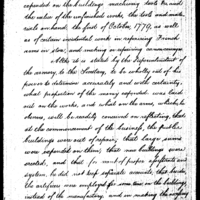 expended on the buildings machinery tools &c and
the value of the unfinished works, the tools and mate-
rials on hand the first of October 1799, as well
as of certain incidental work in repairing French
arms in store; and making or repairing
Altho' it is stated by the Superintendent of
the armory, to the Secretary, to be wholly out of his
power to determine accurately and with certainty,
what proportion of the money expended was laid
out on the works, and what on the arms, which, he
deems, will be readily conceived on reflecting, that
at the commencement of the business, the public
buildings were out of repair, that large sums
were expended on them; that new buildings were
erected, and that for want of proper assistants and
system, he did not keep separate accounts, that besides
the artificers were employed for some time on the buildings
instead of the manufactory, and on making the necessary